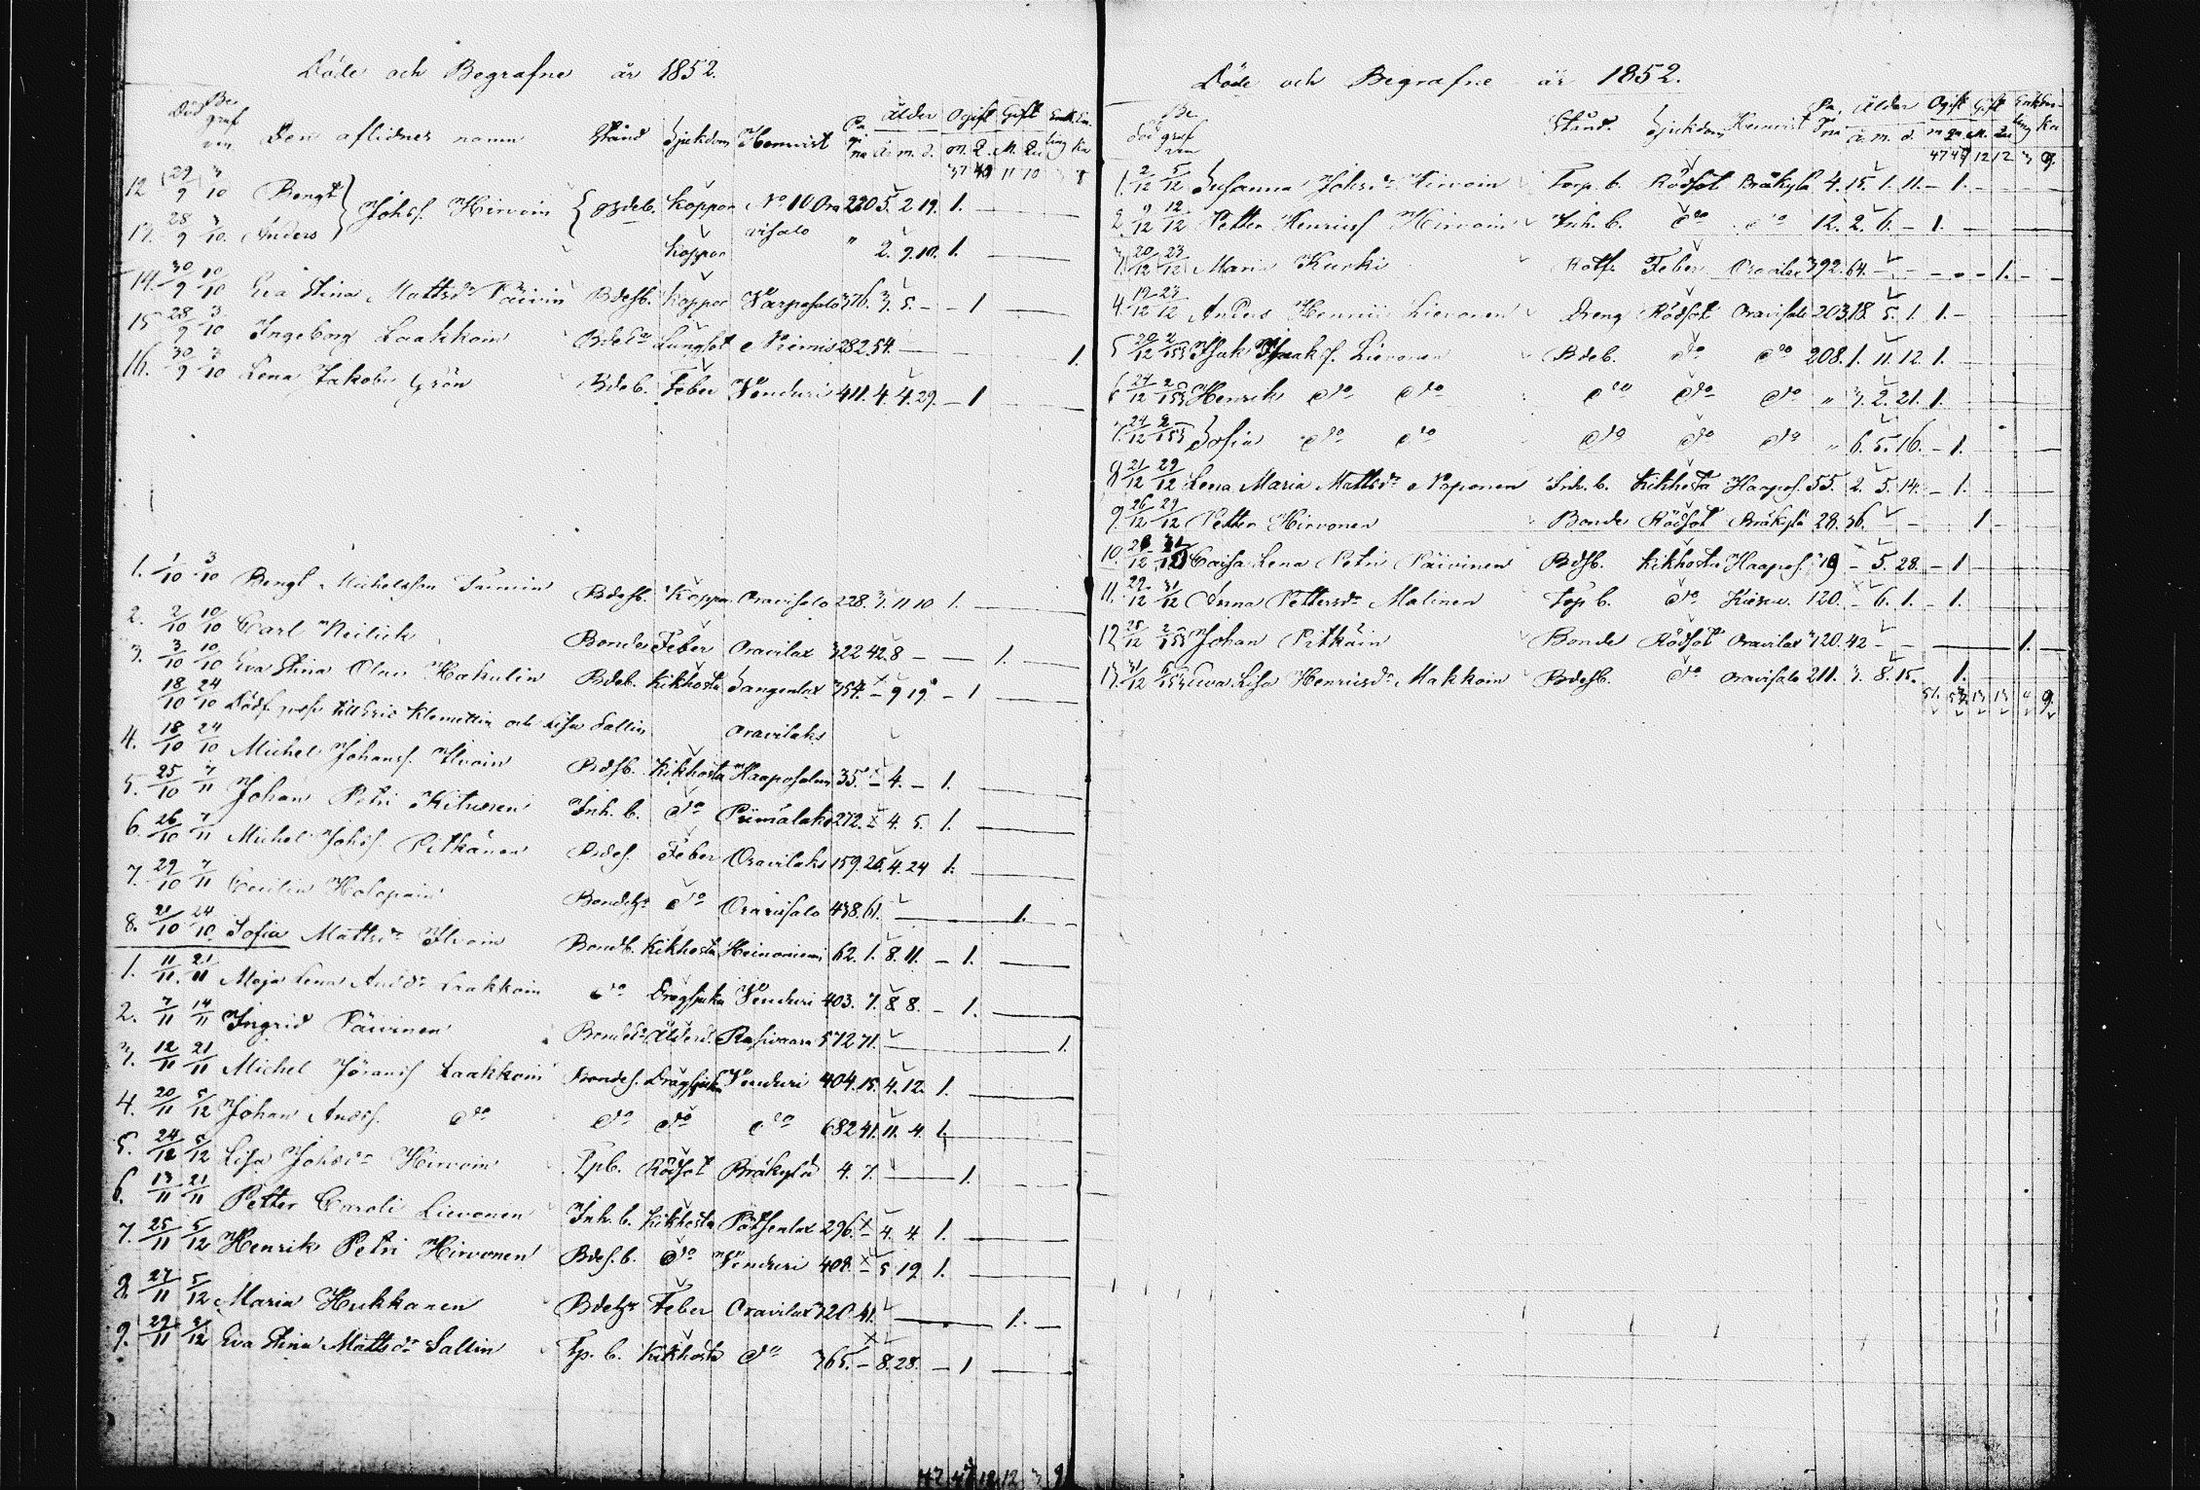 Döde och Begrafne år 1852.
Död Begrafven Den aflidnes namn Stånd Sjukdom Hemvist Pagina Ålder Ogift Gift Enkling Enka
år m. d. m. Q. M. Qu
37 40 11 10 3 8
12 29/9 3/10 Bengt } Johsf. Hirvoin { Bdeb. Koppor No 10 Oravisalo 220 5. 2. 19. 1.
13. 28/9 3/10. Anders Koppor " 2. 9. 10. 1.
14. 30/9 10/10 Eva Stina Mattsdr Päivin Bdesb. Koppor Varpasalo 376. 3. 5. – – 1
15 28/9 3/10 Ingeborg Laakkoin Lungsot Niemis 282 54. – 1.
16. 30/9 3/10 Lena Jakobs Grön Bdeb. Feber Venduri 411. 4. 4. 29. – 1
1. 1/10 3/10 Bengt Michelsson Bdesb. Koppor Oravisalo 228. 3. 11 10 1.
2. 2/10 10/10 Carl Neilick Bonde Feber Oravilax 322 42. 8 – – 1.
3. 3/10 10/10 Eva Stina Olavi Hakulin Bdeb. Kikhosta Sangenlax 354. – 9 19 – 1
18/10 24/10 Dödf. till Eric Klemettin och Lisa Sallin Oravilaks
4. 18/10 24/10 Michel Johansf. Ilvoin Bdsb. Kikhosta Haaposalmi 35. – 4. – 1.
5. 25/10 7/11 Johan Petri Kituoen Inh. b. do Piimälaks 272. – 4. 5. 1.
6. 26/10 7/11 Michel Johsf. Pitkänen Bdes. Feber Oravilaks 159. 20. 4. 24 1.
7. 29/10 7/11 Cecilia Holopain Bondehr do Oravisalo 438. 61. 1.
8. 21/10 24/10 Sofia Mattsdr Ilvoin Bondb. Kikhosta Heinoniemi 62. 1. 8. 11. – 1.
1. 11/11. 21/11 Maja Lena Andsdr Laakkoin do Dragsjuka Venduri 403. 7. 8 8. – 1.
2. 7/11 14/11 Ingrid Päivinen Ålderd. Rasivaara 572 71. 1.
3. 12/11 21/11 Michel Jöransf Laakkoin Bondes. Dragsjuka Venduri 404. 15. 4. 12. 1.
4. 20/11 5/12 Johan Andsf. do do do do 682 41. 11. 4. 1.
5. 24/12 5/12 Lisa Johsdr Hirvoin Tpb. Rödsot Bräkylä 4. 7. 1.
6. 13/11 21/11 Petter Caroli Lievonen Inh. b. Kikhosta Pötsenlax 296. – 4. 4. 1.
7. 25/11 5/12 Henrik Petri Hirvonen Bdes. b. do Venduri 408. – 5 19 1.
8. 27/11 5/12 Maria Hukkanen Bdehr Feber Oravilax 320. 41. 1.
9. 29/11 5/12 Eva Stina Mattsdr Sallin Tp. b. Kikhosta do 365. – 8. 28. – 1
47 47 12 12 3 9
Döde och Begrafne år 1852.
Död Begrafven Stånd. Sjukdom Hemvist Pagina Ålder Ogift Gift Enkling Enka
år m. d. m Qu M. Qu
47 47 12 12 3 9.
1. 2/12 5/12 Susanna Johsdr Hirvoin Torp. b. Rödsot Bräkylä 4. 15. 1. 11. – 1.
2. 9/12 12/12 Petter Henricsf Hirvoin Inh. b. do do 12. 2. 6. – 1.
3. 20/12 23/12 Maria Kurki Feber Oravilax 392. 64. – 1.
4. 19/12 23/12 Anders Henrici Lievonen Dreng Rödsot Oravisalo 203 18. 5. 1. 1.
5 20/12 2/1 53 Isak Isaksf. Lievonen Bdeb. do do 208. 1. 11. 12. 1.
6 24/12 2/1 53 Henrik do do do do do " 3. 2. 21. 1.
7. 24/12 2/1 53 Sofia do do do do do " 6. 5. 16. – 1.
8 21/12 29/12 Lena Maria Mattsdr Naponen Inh. b. Kikhosta Haapos. 55. 2. 5. 14. – 1.
9. 26/12 29/12 Petter Hirvonen Bonde Rödsot Bräkylä 28. 36. – 1
10. 28/12 31/12 Caisa Lena Petri Päivinen Bdsb. Kikhosta Haapos. 19 – 5. 28. – 1
11. 29/12 31/12 Anna Pettersdr Malinen Top b. do 120. – 6. 1. – 1.
12 25/12 2/1 53 Johan Pitkäin Bonde Rödsot Oravilax 320. 42 – 1.
13. 31/12 6/1 53 Eva Lisa Henricsdr Makkoin Bdesb. do Oravisalo 211. 3. 8. 15. 1.
51. 53. 13 13 4 9.